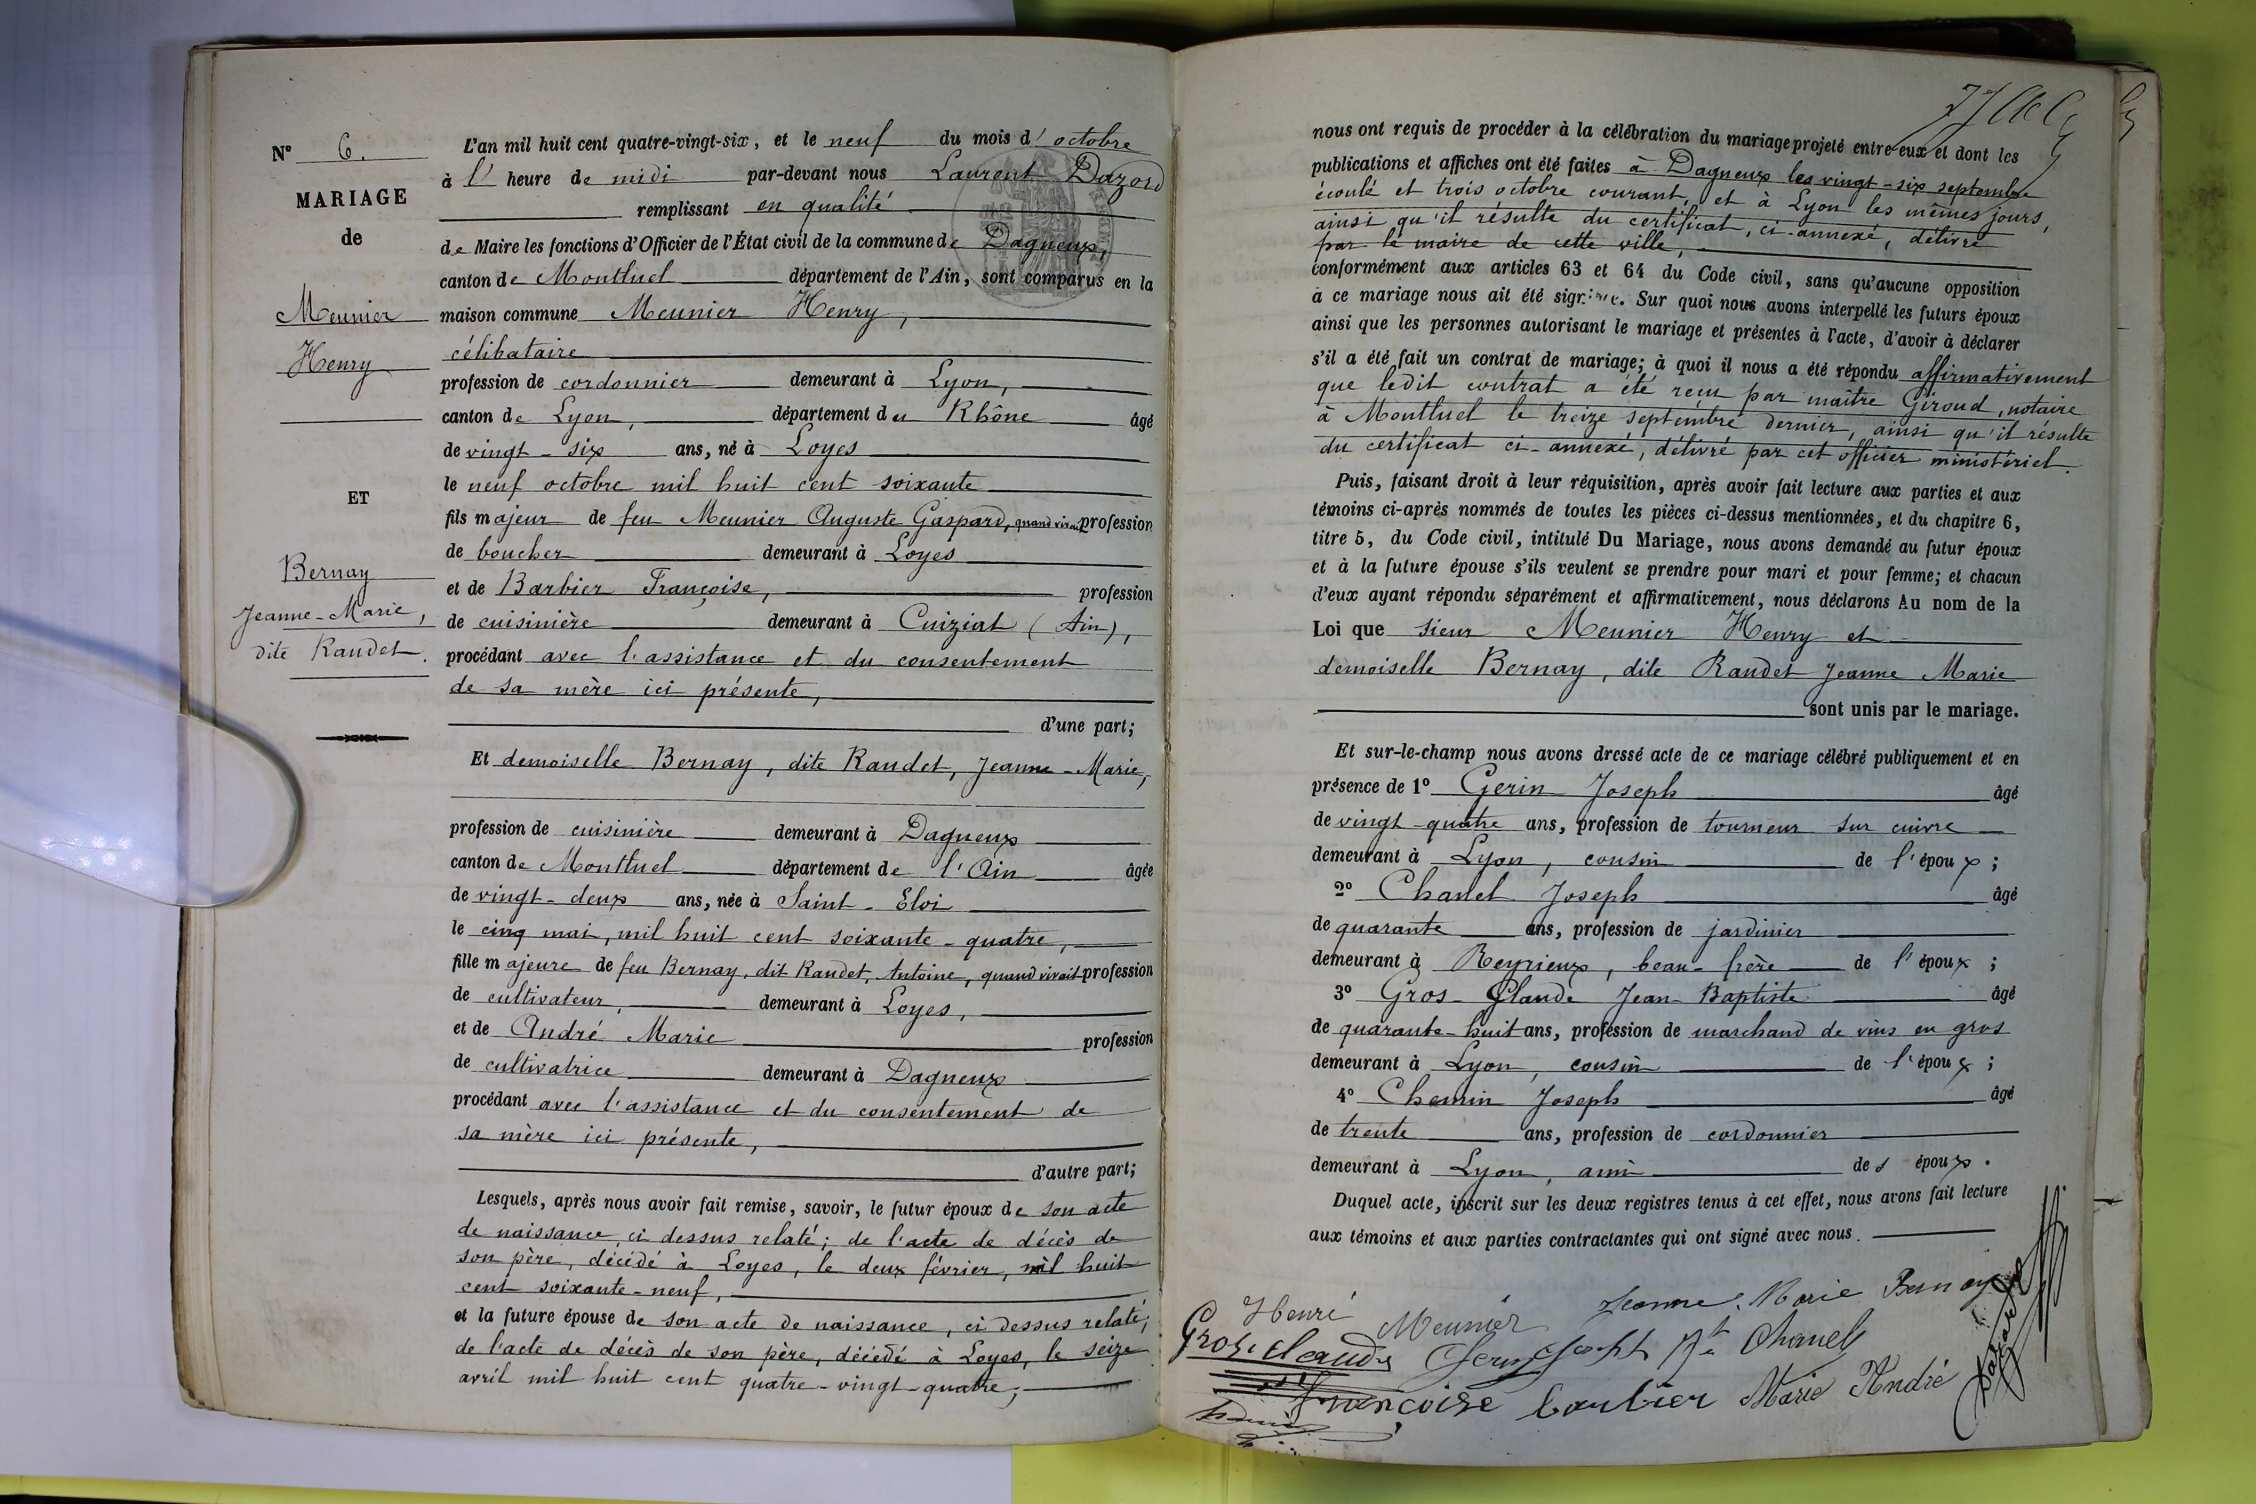 N° 6.
MARIAGE
de
Meunier
Henry
ET
Bernay
Jeanne-Marie,
dite Raudet.
L'an mil huit cent quatre-vingt-six, et le neuf du mois d'octobre
à l' heure de midi par-devant nous Laurent Dazord
remplissant en qualité
de Maire les fonctions d'Officier de l'État civil de la commune de Dagneux,
canton de Montluel département de l'Ain, sont comparus en la
maison commune Meunier Henry,
célibataire
profession de cordonnier demeurant à Lyon,
canton de Lyon, département du Rhône âgé
de vingt-six ans, né à Loyes
le neuf octobre mil huit cent soixante
fils majeur de feu Meunier Auguste Gaspard, quand vivait profession
de boucher demeurant à Loyes
et de Barbier Françoise, profession
de cuisinière demeurant à Cuiziat (Ain),
procédant avec l'assistance et du consentement
de sa mère ici présente,
d'une part;
Et demoiselle Bernay, dite Raudet, Jeanne-Marie,
profession de cuisinière demeurant à Dagneux
canton de Montluel département de l'Ain âgée
de vingt-deux ans, née à Saint-Eloi
le cinq mai, mil huit cent soixante-quatre,
fille majeure de feu Bernay, dit Raudet, Antoine, quand vivait profession
de cultivateur, demeurant à Loyes,
et de André Marie profession
de cultivatrice demeurant à Dagneux
procédant avec l'assistance et du consentement de
sa mère ici présente,
d'autre part;
Lesquels, après nous avoir fait remise, savoir, le futur époux de son acte
de naissance, ci dessus relaté; de l'acte de décès de
son père, décédé à Loyes, le deux février, mil huit
cent soixante-neuf,
et la future épouse de son acte de naissance, ci dessus relaté;
de l'acte de décès de son père, décédé à Loyes, le seize
avril mil huit cent quatre-vingt-quatre;
nous ont requis de procéder à la célébration du mariage projeté entre eux et dont les
publications et affiches ont été faites à Dagneux les vingt-six septembre
écoulé et trois octobre courant, et à Lyon les mêmes jours,
ainsi qu'il résulte du certificat, ci-annexé, délivré
par le maire de cette ville,
conformément aux articles 63 et 64 du Code civil, sans qu'aucune opposition
à ce mariage nous ait été signifiée. Sur quoi nous avons interpellé les futurs époux
ainsi que les personnes autorisant le mariage et présentes à l'acte, d'avoir à déclarer
s'il a été fait un contrat de mariage; à quoi il nous a été répondu affirmativement
que ledit contrat a été reçu par maître Giroud, notaire
à Montluel le treize septembre dernier, ainsi qu'il résulte
du certificat ci-annexé, délivré par cet officier ministériel.
Puis, faisant droit à leur réquisition, après avoir fait lecture aux parties et aux
témoins ci-après nommés de toutes les pièces ci-dessus mentionnées, et du chapitre 6,
titre 5, du Code civil, intitulé Du Mariage, nous avons demandé au futur époux
et à la future épouse s'ils veulent se prendre pour mari et pour femme; et chacun
d'eux ayant répondu séparément et affirmativement, nous déclarons Au nom de la
Loi que sieur Meunier Henry et
demoiselle Bernay, dite Raudet Jeanne Marie
sont unis par le mariage.
Et sur-le-champ nous avons dressé acte de ce mariage célébré publiquement et en
présence de 1° Gerin Joseph âgé
de vingt-quatre ans, profession de tourneur sur cuivre
demeurant à Lyon, cousin de l'époux;
2° Chanel Joseph âgé
de quarante ans, profession de jardinier
demeurant à Reyrieux, beau-frère de l'époux;
3° Gros-Claude Jean-Baptiste âgé
de quarante-huit ans, profession de marchand de vins en gros
demeurant à Lyon, cousin de l'époux;
4° Chemin Joseph âgé
de trente ans, profession de cordonnier
demeurant à Lyon, ami des époux.
Duquel acte, inscrit sur les deux registres tenus à cet effet, nous avons fait lecture
aux témoins et aux parties contractantes qui ont signé avec nous.
Henri Meunier Jeanne Marie Bernay
Gros Claude Gerin Joseph Chanel
Françoise barbier Marie André
Dazord